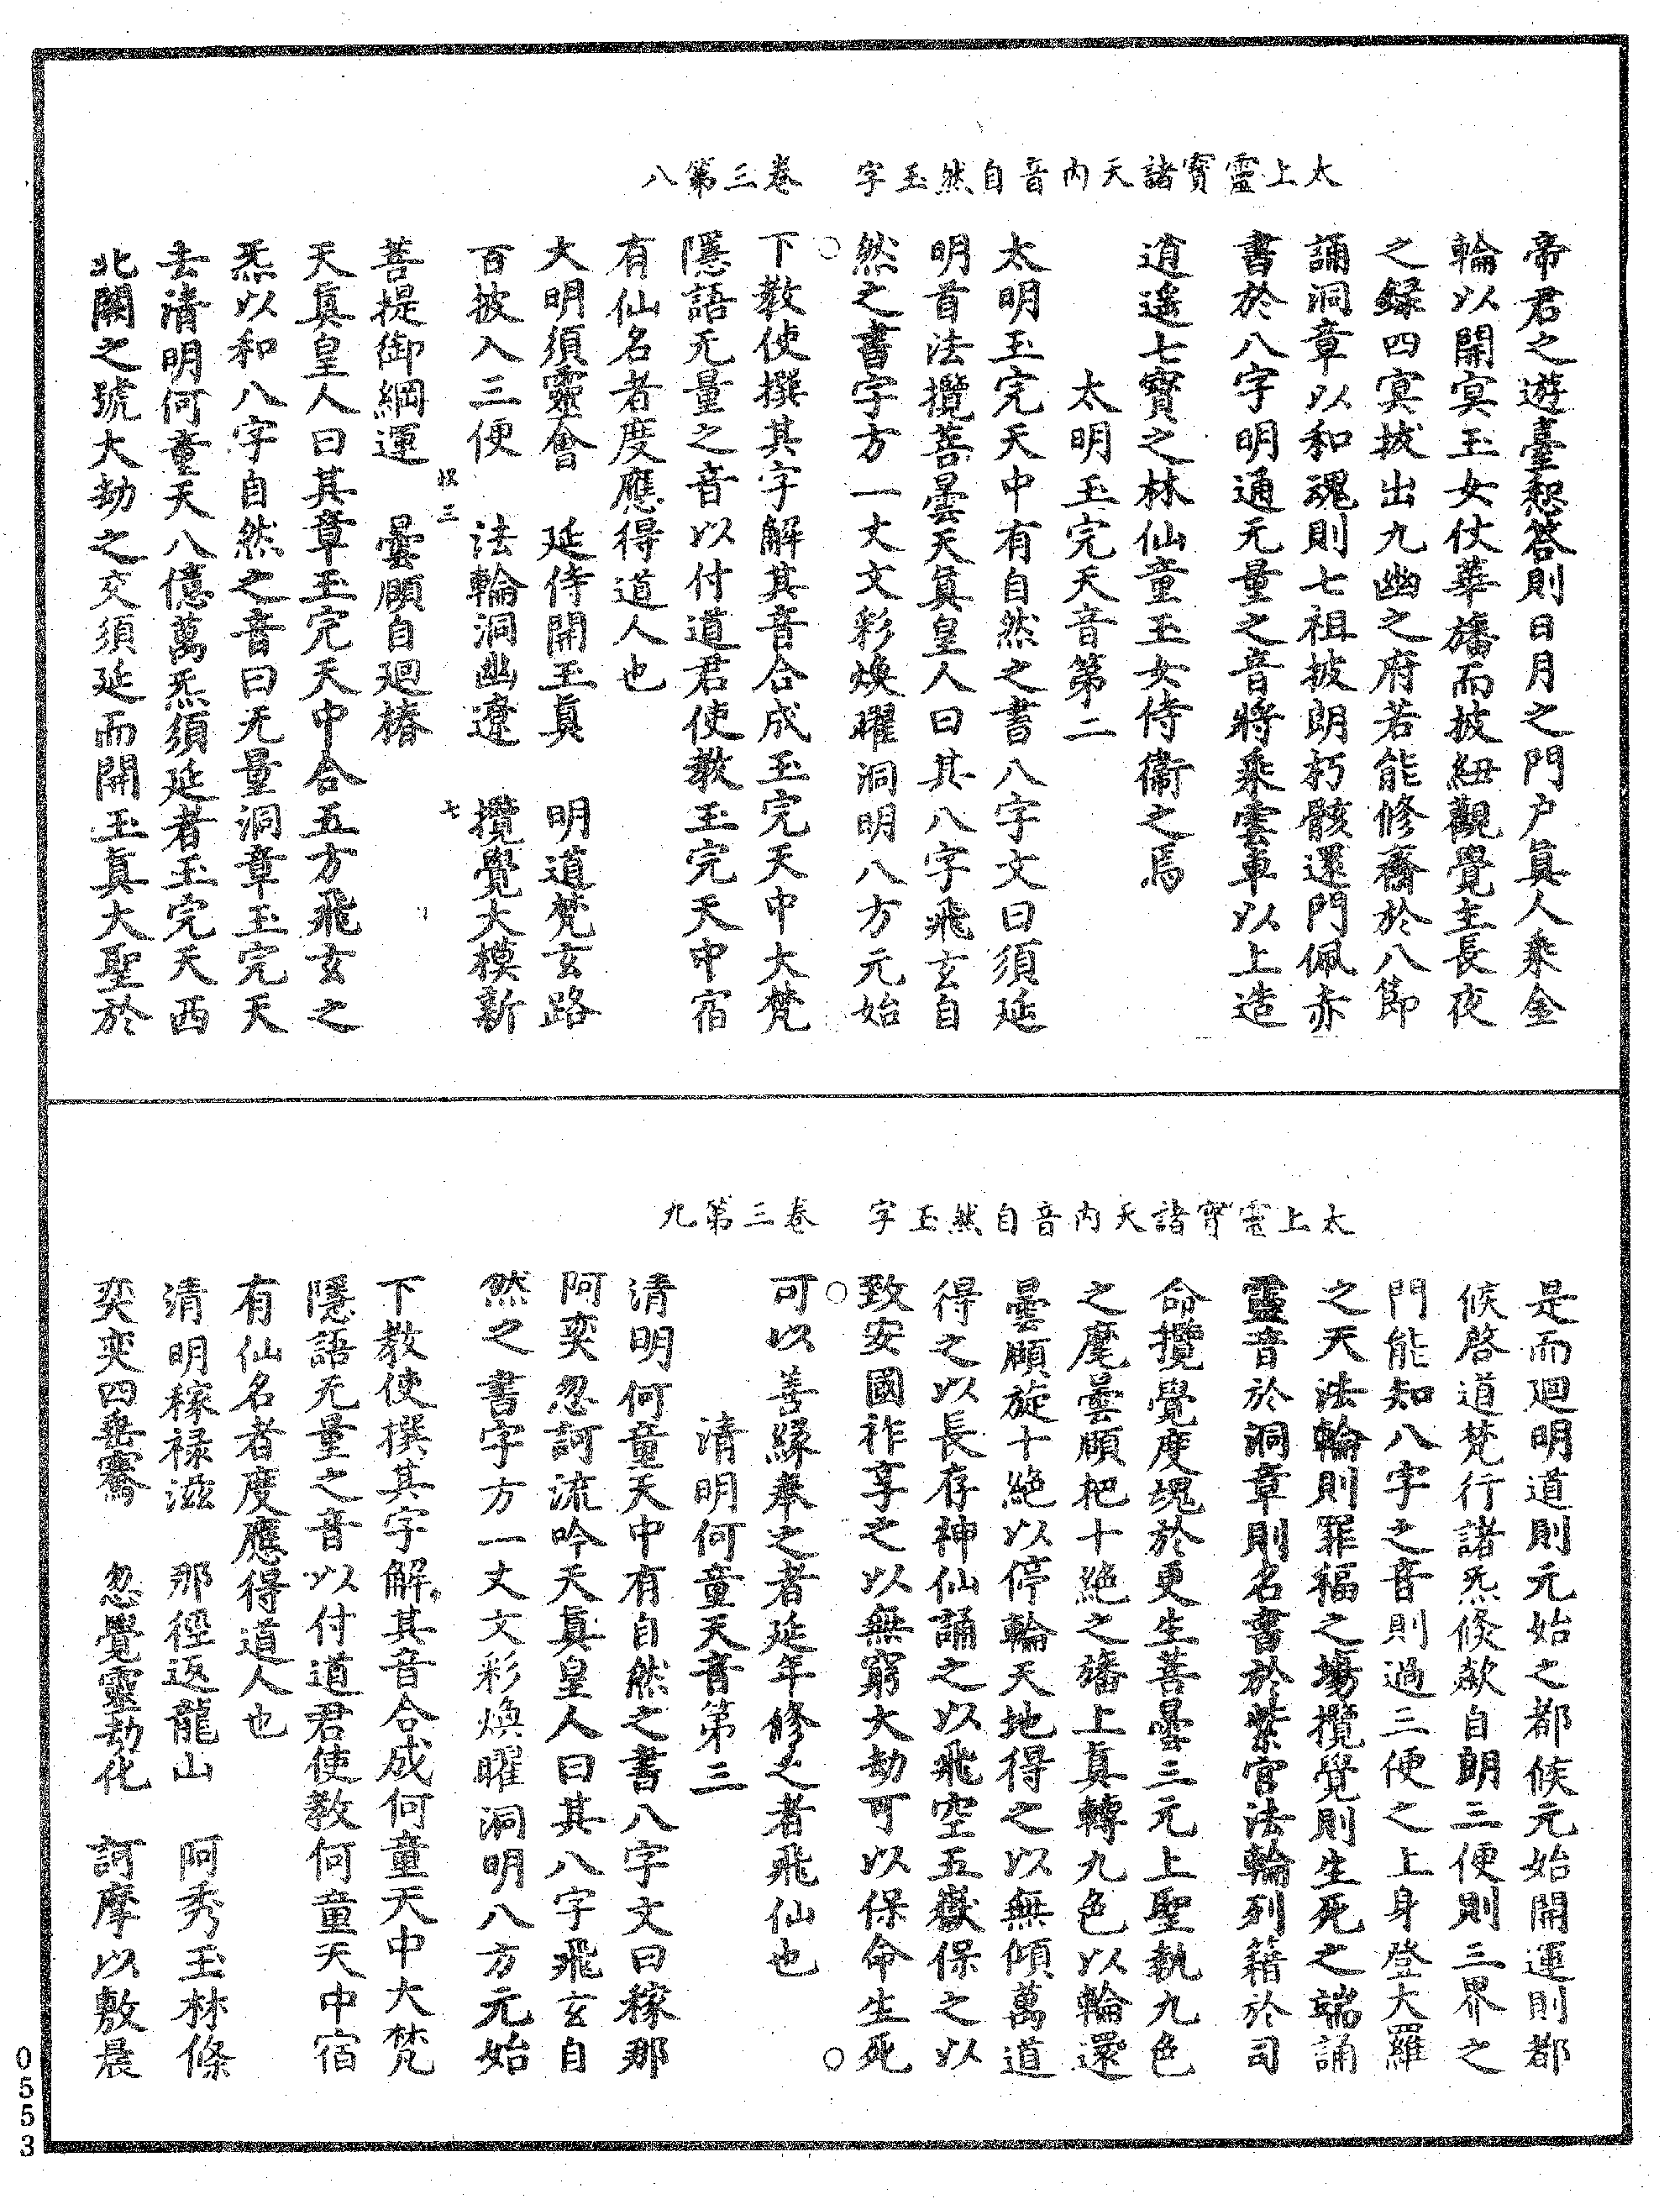 太上靈寶諸天內音自然玉字　卷三第八
帝君之遊臺恕荅則日月之門户真人乘金
輪以開冥玉女仗華旛而披紐觀覺主長夜
之録四冥拔出九幽之府若能修齋於八節
誦洞章以和魂則七祖披朗朽骸還門佩赤
書於八字明通无量之音將乘雲車以上造
逍遙七寳之林仙童玉女侍衞之焉
太明玉完天音第二
太明玉完天中有自然之書八字文曰須延
明首法攬菩曇天真皇人曰其八字飛玄自
然之書字方一丈文彩煥曜洞明八方元始
下教使撰其字解其音合成玉完天中大梵
隱語无量之音以付道君使教玉完天中宿
有仙名者度應得道人也
大明須靈會　延侍開玉真　明道梵玄路
百披入三便　法輪洞幽遼　攬覺大模新
菩提御綱運　曇願自廻椿
天真皇人曰其章玉完天中合五方飛玄之
炁以和八字自然之音曰无量洞章玉完天
去清明何童天八億萬炁須延者玉完天西
北闕之號大劫之交須延而開玉真大聖於
三
七
太上靈寳諸天內音自然玉字　卷三第九
是而廻明道則元始之都候元始開運則都
候啓道梵行諸炁候歘自朗三便則三界之
門能知八字之音則過三便之上身登大羅
之天法輪則罪福之場攬覺則生死之端誦
靈音於洞章則名書於紫宫法輪列籍於司
命攬覺度塊於更生菩曇三元上聖執九色
之麾曇願把十絶之旛上真轉九色以輪還
曇願旋十絶以停輪天地得之以無傾萬道
得之以長存神仙誦之以飛空五嶽保之以
致安國祚享之以無窮大劫可以保命生死
可以善緣奉之者延年修之者飛仙也
清明何童天音第三
清明何童天中有自然之書八字文曰稼那
阿奕忽訶流吟天真皇人曰其八字飛玄自
然之書字方一丈文彩煥曜洞明八方元始
下教使撰其字解其音合成何童天中大梵
隱語无量之音以付道君使教何童天中宿
有仙名者度應得道人也
清明稼禄滋　那徑返龍山　阿秀玉林條
奕奕四垂騫　忽覺靈劫化　訶摩以敷晨
0553